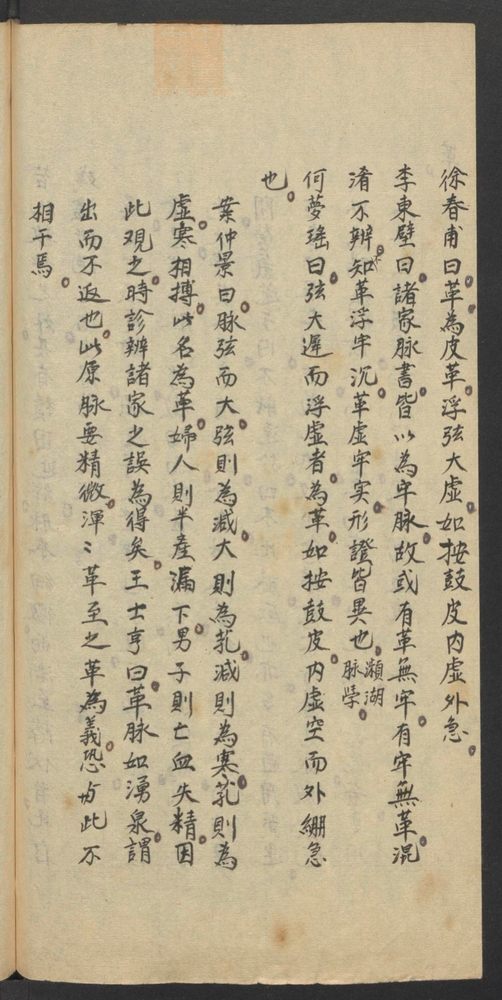 徐春甫曰革為皮革浮弦大虛如按鼓皮内虛外急
李東壁曰諸家脉書皆以為牢脉故或有革無牢有牢無革混
淆不辨不知革浮牢沉革虛牢实形證皆異也瀕湖脉學
何夢瑤曰弦大遲而浮虛者為革如按鼓皮内虛空而外綳急
也
案仲景曰脉弦而大弦則為减大則為芤减則為寒芤則為
虛寒相摶此名為革婦人則半產漏下男子則亡血失精因
此观之時診辨諸家之誤為得矣王士亨曰革脉如湧泉謂
出而不返也此原脉要精微渾〻革至之革為義恐与此不
相干焉